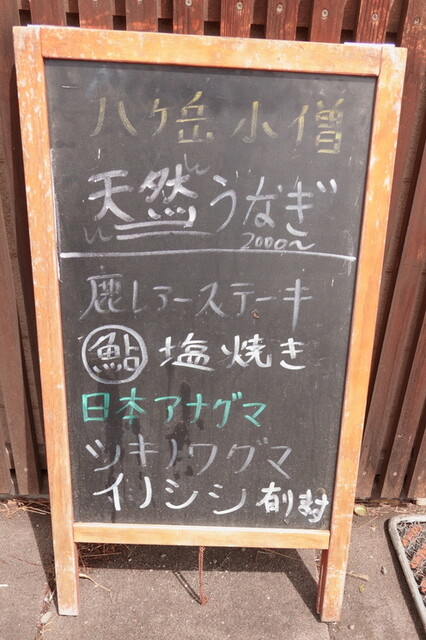 八ヶ岳 小僧
天然うなぎ
2000~
鹿レアーステーキ
鮎 塩焼き
日本アナグマ
ツキノワグマ
イノシシ有ります